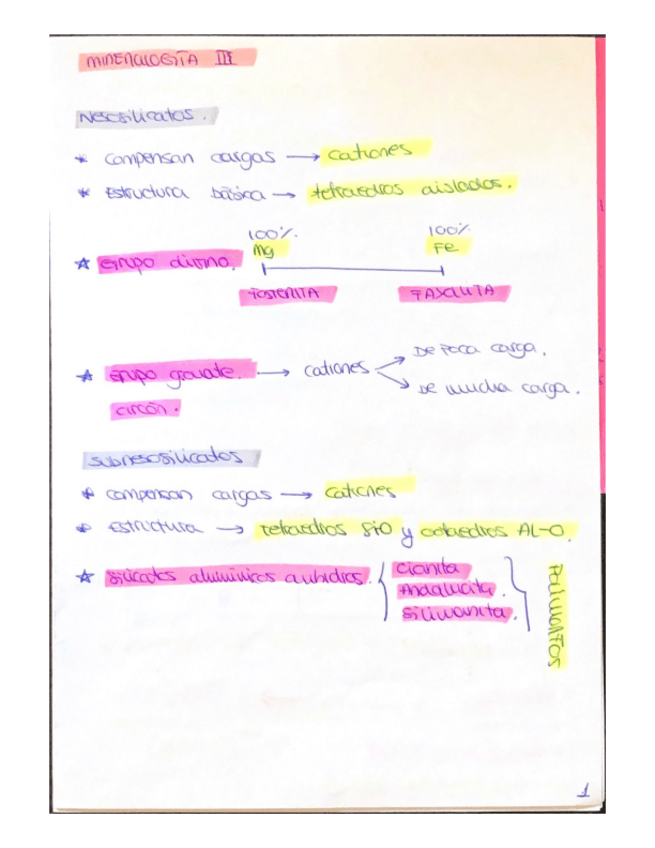 MINERALOGÍA III
Nesosilicatos.
* Compensan cargas → cationes
* Estructura básica → tetraedros aislados.
100%. 100%
Mg Fe
☆ Grupo olivino.
FOSTERITA FAYALITA
☆ Grupo granate. → cationes
De poca carga.
De mucha carga.
circón.
Subnesosilicatos
* compensan cargas → cationes
* Estructura → Tetraedros SiO y octaedros AL-O.
☆ Silicatos alumínicos anhidros. { Cianita
Andalucita.
Silimanita. }
POLIMORFOS
1